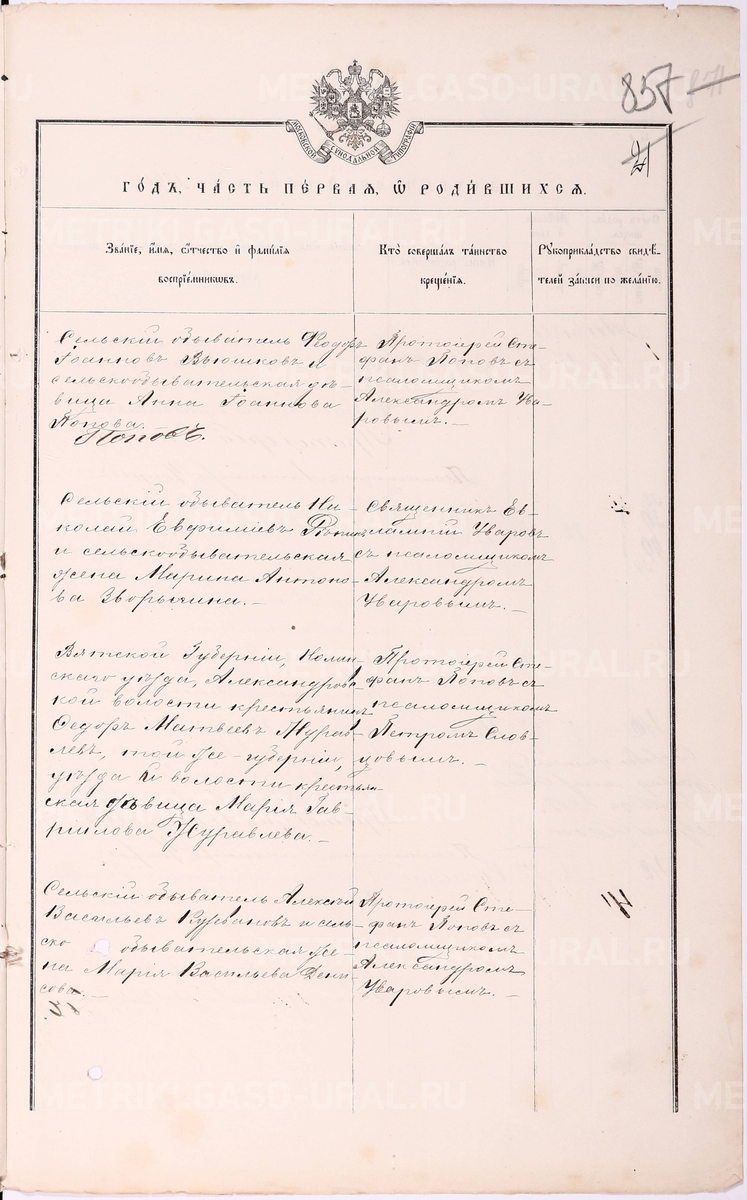 857
21
МОСКОВСКОЙ СѴНОДАЛЬНОЙ ТИПОГРАФІИ
ГО́ДЪ, ЧА́СТЬ ПЕ́РВАЯ, Ѿ РОДИ́ВШИХСЯ.
Зва́ніе, и҆́мя, ѻ҆́тчество и҆ фами́лія
воспріе́мниковъ.
Кто̀ соверша́лъ та́инство
креще́нія.
Рꙋкоприкла́дство свидѣ́-
телей за́писи по жела́нію.
Сельскій обыватель Ѳеодоръ
Іоанновъ Вьюшковъ и
сельскообывательская дѣ-
вица Анна Іоаннова
Попова.
Поповъ.
Протоіерей Сте-
фанъ Поповъ съ
псаломщикомъ
Александромъ Ува-
ровымъ. —
Сельскій обыватель Ни-
колай Евфиміевъ
и сельскообывательская
жена Марина Антоно-
ва Зворыгина. —
Священникъ Ев-
лампій Уваровъ
съ псаломщикомъ
Александромъ
Уваровымъ. —
Вятской Губерніи, Нолин-
скаго уѣзда, Александровс-
кой волости крестьянинъ
Ѳедоръ Матвеевъ Журав-
левъ, той же губерніи,
уѣзда и волости крестьян-
ская дѣвица Марія Гав-
ріилова Журавлева. —
Протоіерей Сте-
фанъ Поповъ съ
псаломщикомъ
Петромъ Слов-
цовымъ. —
Сельскій обыватель Алексѣй
Васильевъ Курбановъ и сель-
ско обывательская же-
на Марія Васильева Дени-
сова. —
Протоіерей Сте-
фанъ Поповъ съ
псаломщикомъ
Александромъ
Уваровымъ. —
METRIKI.GASO-URAL.RU